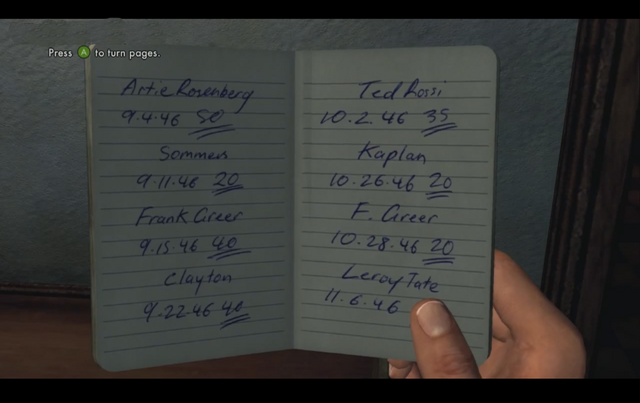 Press A to turn pages.
Artie Rosenberg
9.4.46 50
Sommers
9.11.46 20
Frank Greer
9.15.46 40
Clayton
9.22.46 40
Ted Rossi
10.2.46 35
Kaplan
10.26.46 20
F. Greer
10.28.46 20
Leroy Tate
11.6.46